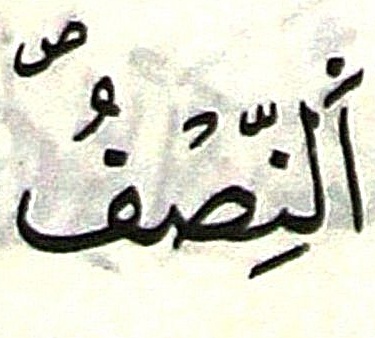 اَلنِّصْفُ ص